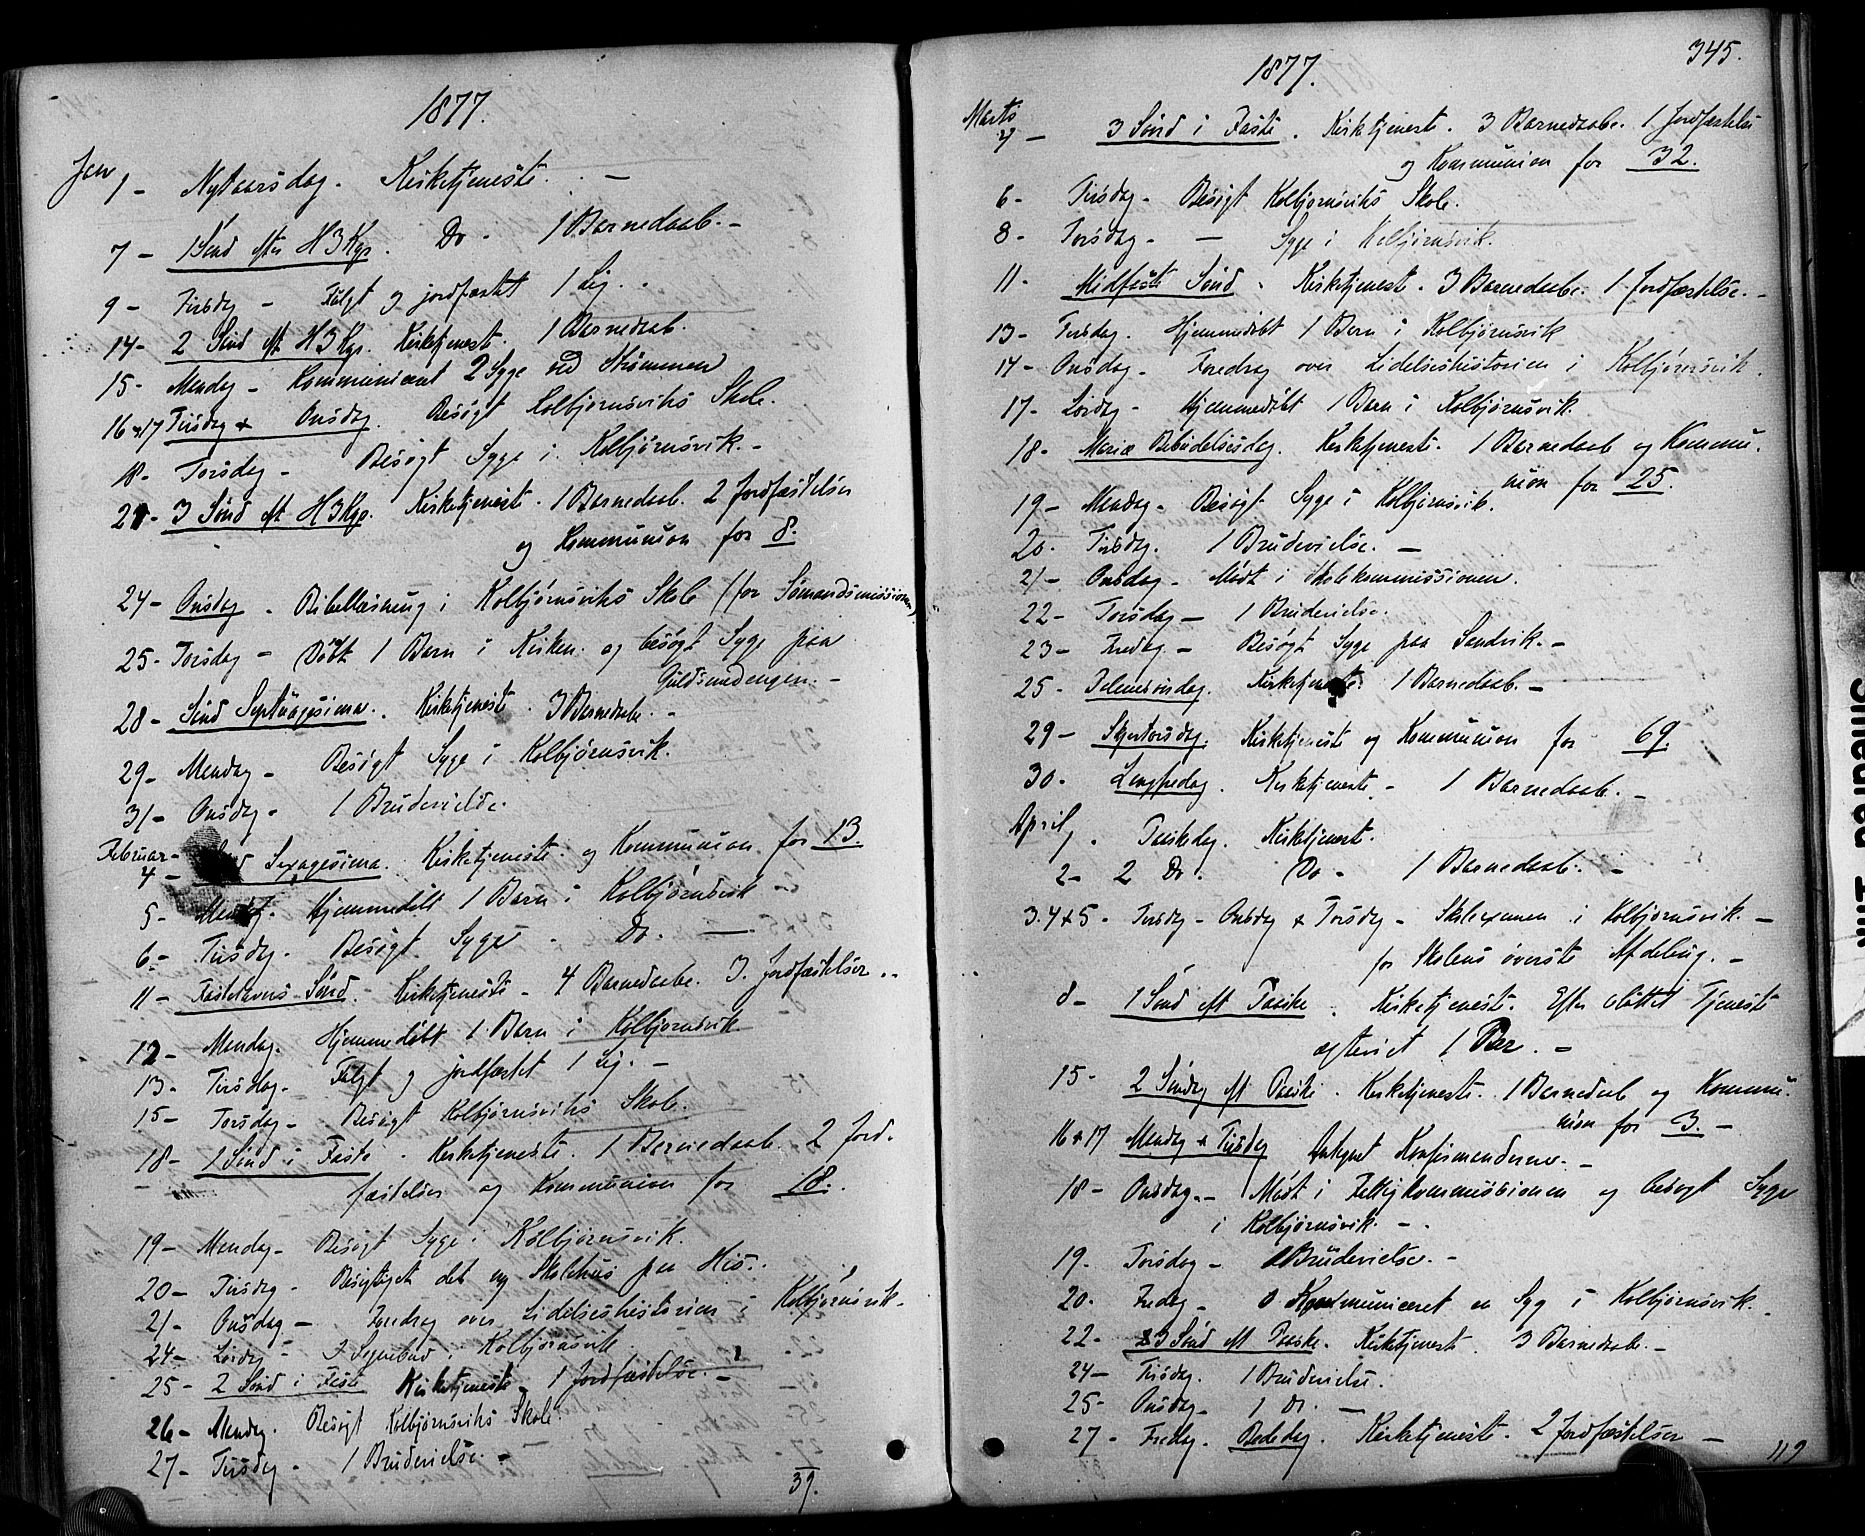 1877.
Jan 1 - Nytaarsdag. Kirketjeneste. -
7 - 1 Sönd efter H 3 Kgr. Do. 1 Barnedaab. -
9 - Tirsdag - Fulgt og jordfæstet 1 Lig. -
14 - 2 Sönd eft H 3 Kgr. Kirketjenest. 1 Barnedaab.
15 - Mandag - Kommuniceret 2 Syge ved Strömmen
16 & 17 Tirsdag & Onsdag. Besögt Kolbjörnsviks Skole.
18 - Torsdag - Besögt Syge i Kolbjörnsvik. -
21 - 3 Sönd eft H 3 Kgr. Kirketjenest. 1 Barnedaab. 2 Jordfæstelser
og Kommunion for 8.
24 - Onsdag. Bibellæsning i Kolbjörnsviks Skole (for Sömandsmissionen)
25 - Torsdag - Döbt 1 Barn i Kirken og besögt Syge paa
Guldsmedengen. -
28 - Sönd Septuagesima. Kirketjeneste. 3 Barnedaabe. -
29 - Mandag - Besögt Syge i Kolbjörnsvik.
31 - Onsdag - 1 Brudevielse.
Februar -
4 - Sexagesima. Kirketjeneste og Kommunion for 13.
5 - Mandag. Hjemmedöbt 1 Barn i Kolbjörnsvik -
6 - Tirsdag. Besögt Syge - Do. -
11 - Fastelavns-Sönd. - Kirketjeneste - 4 Barnedaabe. 3 Jordfæstelser. -
12 - Mandag. Hjemmedöbt 1 Barn i Kolbjörnsvik
13 - Tirsdag - Fulgt og jordfæstet 1 Lig. -
15 - Torsdag - Besögt Kolbjörnsviks Skole.
18 - 1 Sönd i Faste. Kirketjeneste. 1 Barnedaab. 2 Jord-
fæstelser og Kommunion for 18.
19 - Mandag - Besögt Syge i Kolbjörnsvik.
20 - Tirsdag - Besigtiget det ny Skolehus paa His.
21 - Onsdag - Foredrag over Lidelseshistorien i Kolbjörnsvik.
24 - Lördag - Kolbjörnsvik
25 - 2 Sönd i Faste Kirketjeneste - 1 Jordfæstelse. -
26 - Mandag. Besögt Kolbjörnsviks Skole.
27 - Tirsdag - 1 Brudevielse. -
39.
345.
1877.
Marts
4 - 3 Sönd i Faste. Kirketjeneste. 3 Barnedaabe. 1 Jordfæstelse
og Kommunion for 32.
6 - Tirsdag - Besögt Kolbjörnsviks Skole.
8 - Torsdag - - Syge i Kolbjörnsvik.
11 - Midfaste Sönd. Kirketjenest. 3 Barnedaabe. 1 Jordfæstelse. -
13 - Tirsdag. Hjemmedöbt 1 Barn i Kolbjörnsvik
14 - Onsdag - Foredrag over Lidelseshistorien i Kolbjörnsvik.
17 - Lördag - Hjemmedöbt 1 Barn i Kolbjörnsvik.
18 - Mariæ Bebudelsesdag. Kirketjeneste. 1 Barnedaab og Kommu-
nion for 25.
19 - Mandag - Besögt Syge i Kolbjörnsvik.
20 - Tirsdag. 1 Brudevielse. -
21 - Onsdag - Mödt i Skolekommissionen.
22 - Torsdag - 1 Brudevielse.
23 - Fredag - Besögt Syge paa Sandvik. -
25 - Palmesöndag. Kirketjeneste. 1 Barnedaab. -
29 - Skjertorsdag. Kirketjeneste og Kommunion for 69.
30 - Langfredag. Kirketjeneste. - 1 Barnedaab. -
April
1. Paaskedag. Kirketjenest.
2 - 2 Do. Do - 1 Barnedaab. -
3. 4 & 5 - Tirsdag - Onsdag & Torsdag - Skolexamen i Kolbjörnsvik. -
for Skolens överste Afdeling. -
8 - 1 Sönd eft Paaske. Kirketjeneste. Efter sluttet Tjeneste
ægteviet 1 Par. -
15 - 2 Söndag eft Paaske. Kirketjeneste. 1 Barnedaab og Kommu-
nion for 3. -
16 & 17 Mandag & Tirsdag Antegnet Konfirmanderne. -
18 - Onsdag. - Mödt i Fattigkommissionen og besögt Syge
i Kolbjörnsvik. -
19. Torsdag - Brudevielse. -
20. Fredag - Kommuniceret en Syg i Kolbjörnsvik. -
22 - 3 Sönd eft Paaske. Kirketjenest. 3 Barnedaabe. -
24 - Tirsdag. 1 Brudevielse.
25 - Onsdag - 1 Do. -
27 - Fredag. Bededag. Kirketjeneste. 2 Jordfæstelser -
119